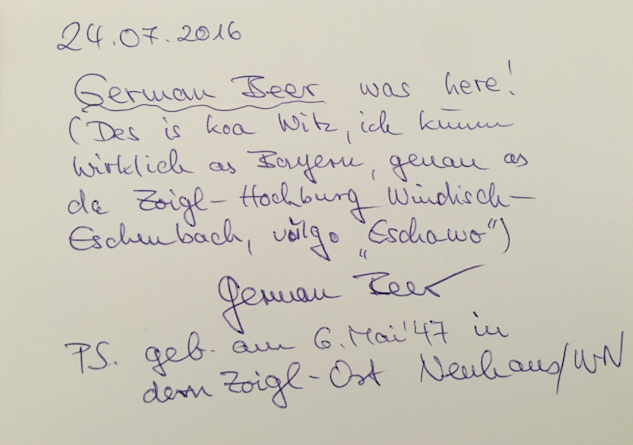 24.07.2016
German Beer was here!
(Des is koa Witz, ich kumm
wirklich as Bayern, genau as
da Zoigl-Hochburg Windisch-
Eschenbach, vulgo „Eschawo“)
German Beer
P.S. geb. am 6. Mai '47 in
dem Zoigl-Ort Neuhaus/WN